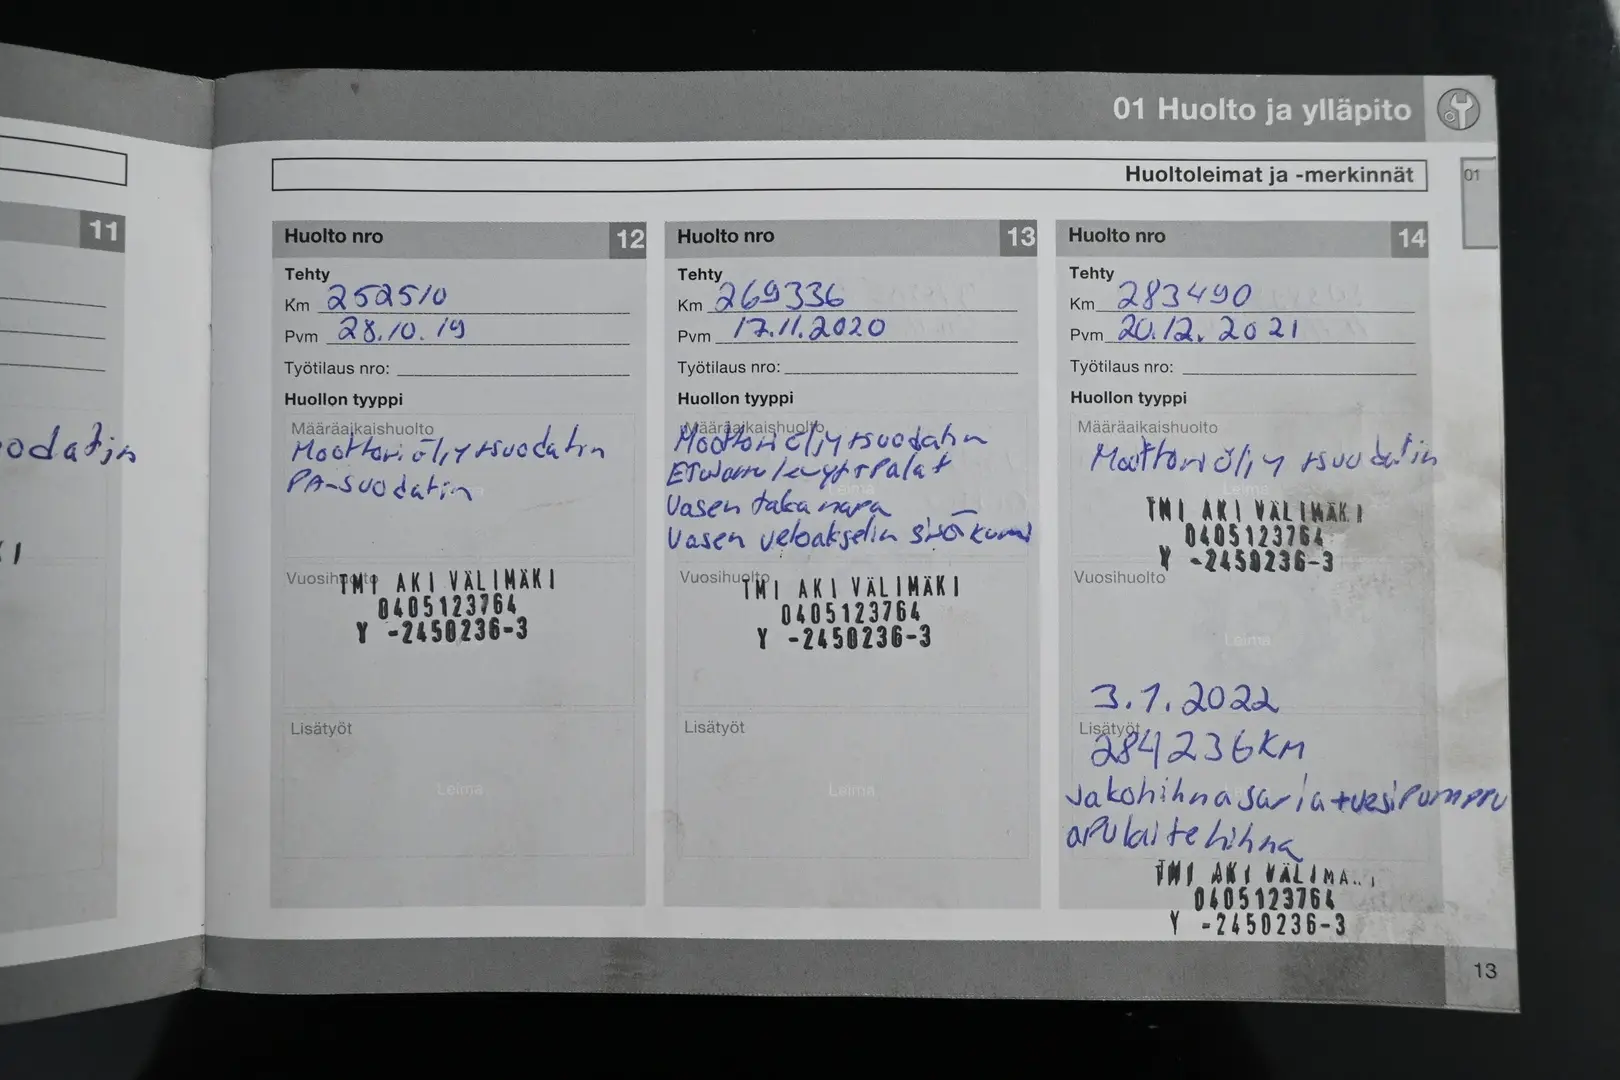 01 Huolto ja ylläpito
Huoltoleimat ja -merkinnät
01
11
odatin
Huolto nro 12
Tehty
Km 252510
Pvm 28.10.19
Työtilaus nro:
Huollon tyyppi
Määräaikaishuolto
Moottoriöljy+suodatin
PA-suodatin
Leima
Vuosihuolto
TMI AKI VÄLIMÄKI
0405123764
Y -2450236-3
Lisätyöt
Leima
Huolto nro 13
Tehty
Km 269336
Pvm 17.11.2020
Työtilaus nro:
Huollon tyyppi
Määräaikaishuolto
Moottoriöljy+suodatin
ETUJarrulevyt+Palat
Leima
Vasen taka napa
Vasen vetoakselin sisäkumi
Vuosihuolto
TMI AKI VÄLIMÄKI
0405123764
Y -2450236-3
Lisätyöt
Leima
Huolto nro 14
Tehty
Km 283490
Pvm 20.12.2021
Työtilaus nro:
Huollon tyyppi
Määräaikaishuolto
Moottoriöljy+suodatin
Leima
TMI AKI VÄLIMÄKI
0405123764
Y -2450236-3
Vuosihuolto
Leima
3.1.2022
Lisätyöt
284236KM
Jakohihnasarja+vesipumppu
aPulaitehihna
TMI AKI VÄLIMÄKI
0405123764
Y -2450236-3
13